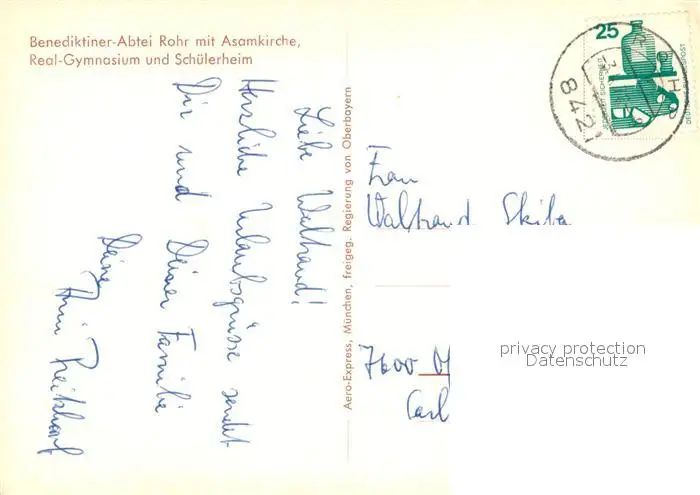 Benediktiner-Abtei Rohr mit Asamkirche,
Real-Gymnasium und Schülerheim
Liebe Waltraud!
Herzliche Urlaubsgrüsse sendet
Dir und Deiner Familie
Deine
Aero-Express, München, freigeg. Regierung von Oberbayern
25
JEDERZEIT SICHERHEIT
DEUTSCHE BUNDESPOST
8421
Frau
Waltraud Skiba
7600
Carl
privacy protection
Datenschutz